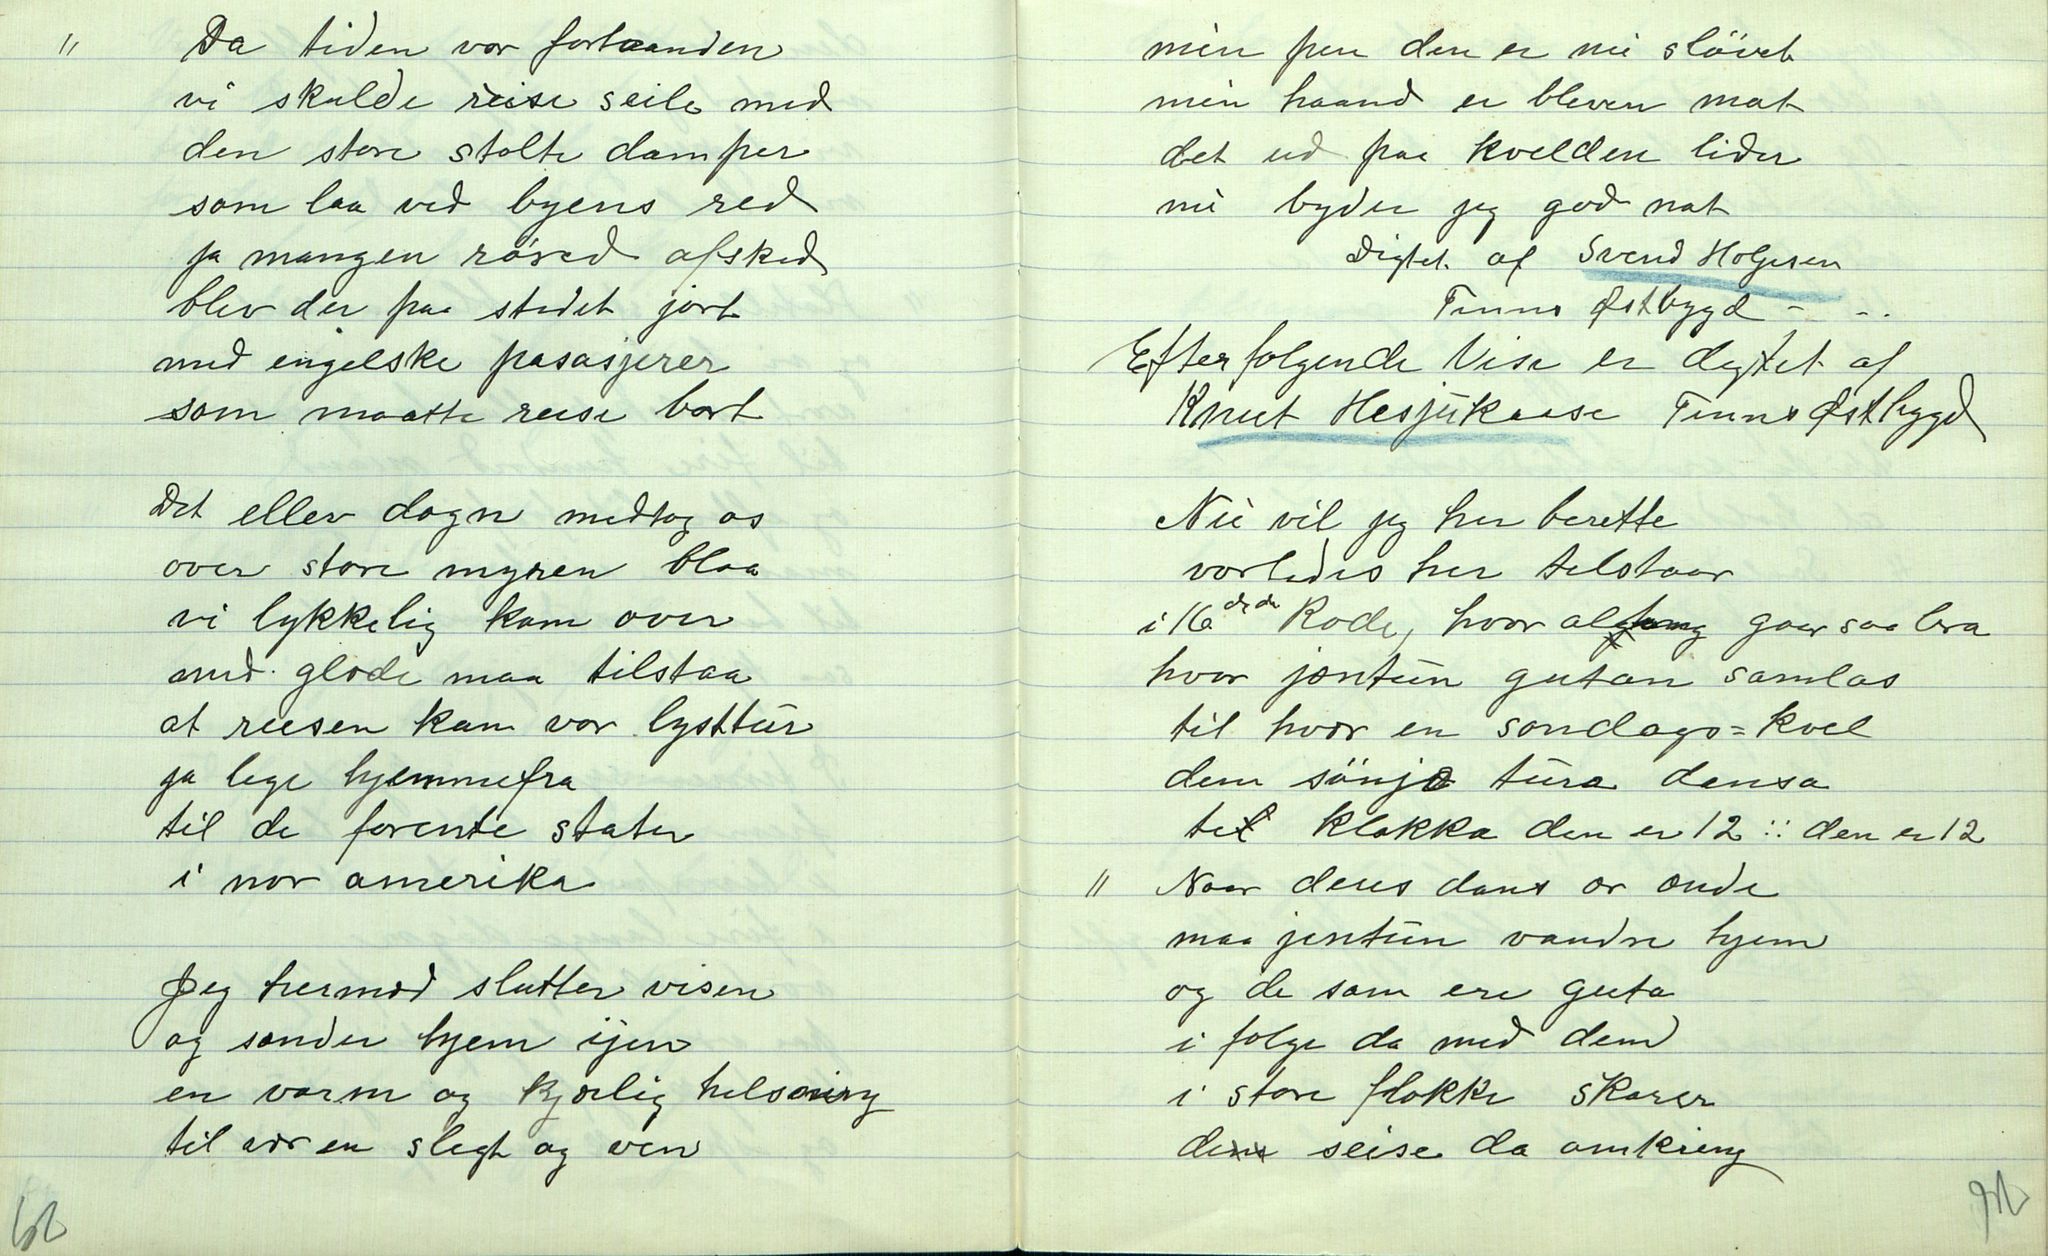 " Da tiden var forhaanden
vi skulde reise seile med
den store stolte damper
som laa ved byens red
ja mangen röred afsked
blev der paa stedet jort
med engelske pasasjerer
som maatte reise bort
Det ellev dogn medtog os
over store myren blaa
vi lykkelig kom over
med glæde maa tilstaa
at reisen kun var lysttür
ja lege hjemmefra
til de forente stater
i nor amerika
Jeg hermed slutter visen
og sender hjem ijen
en varm og kjærlig helsning
til vær en slegt og ven
min pen den er nü slövet
min haand er bleven mat
det ud paa kvelden lider
nü byder jeg god nat
Digtet af Svend Holjesen
Tinns Østbygd
Efterfolgende Vise er degtet af
Knut Hesjükaase Tinns Østbygd
Nü vil jeg her berette
vorledes her telstaar
i 16 de Rode, hvor alting gaar saa bra
hvor jentün gutan samlas
til hvær en sondags=kvel
dem sünje tura dansa
tel klokka den er 12 :: den er 12
" Naar deres dans ær ænde
maa jentün vandre hjem
og de som ere guta
i folge da med dem
i store flokke skarer
dens seise da omkring